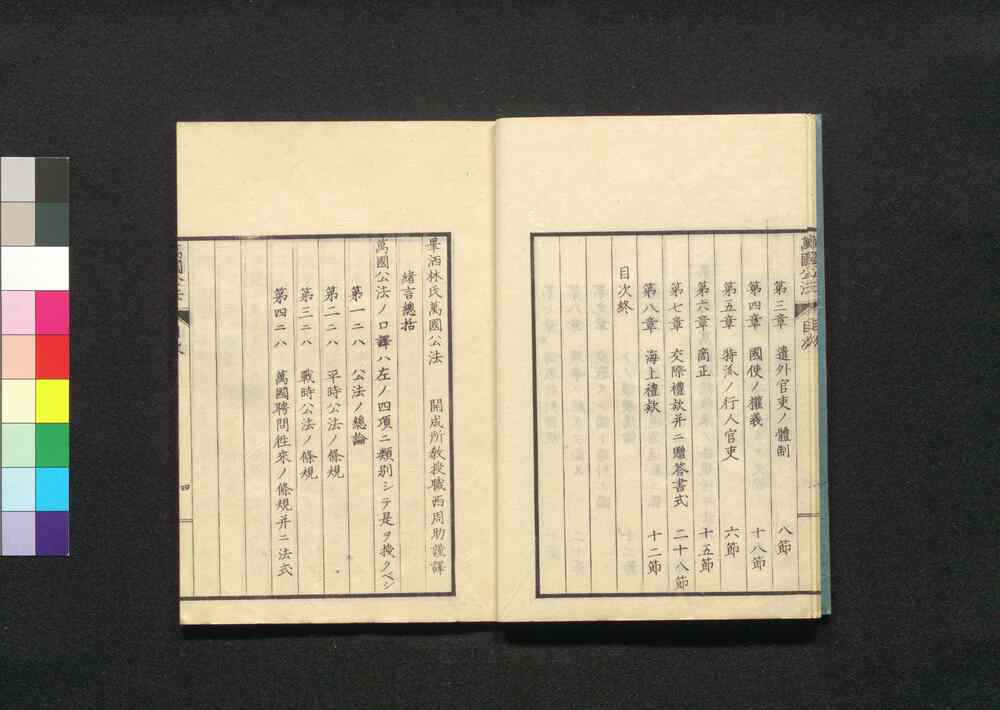 萬國公法 目次
第三章 遣外官吏ノ體制 八節
第四章 國使ノ權義 十八節
第五章 特派ノ行人官吏 六節
第六章 商正 十五節
第七章 交際禮欵并ニ贈答書式 二十八節
第八章 海上禮欵 十二節
目次終
畢洒林氏萬國公法 開成所教授職西周助謹譯
緒言總括
萬國公法ノ口譯ハ左ノ四項ニ類別シテ是ヲ授クベシ
第一ニハ 公法ノ總論
第二ニハ 平時公法ノ條規
第三ニハ 戰時公法ノ條規
第四ニハ 萬國聘問徃來ノ條規并ニ法式
四